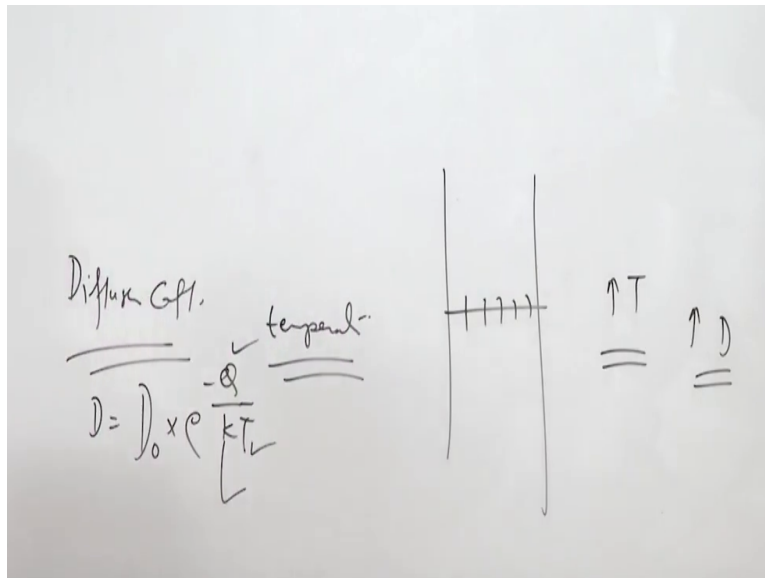 Diffusn Coff.
temperat-
D = D₀ × e^(-Q/kT)
↑ T
↑ D